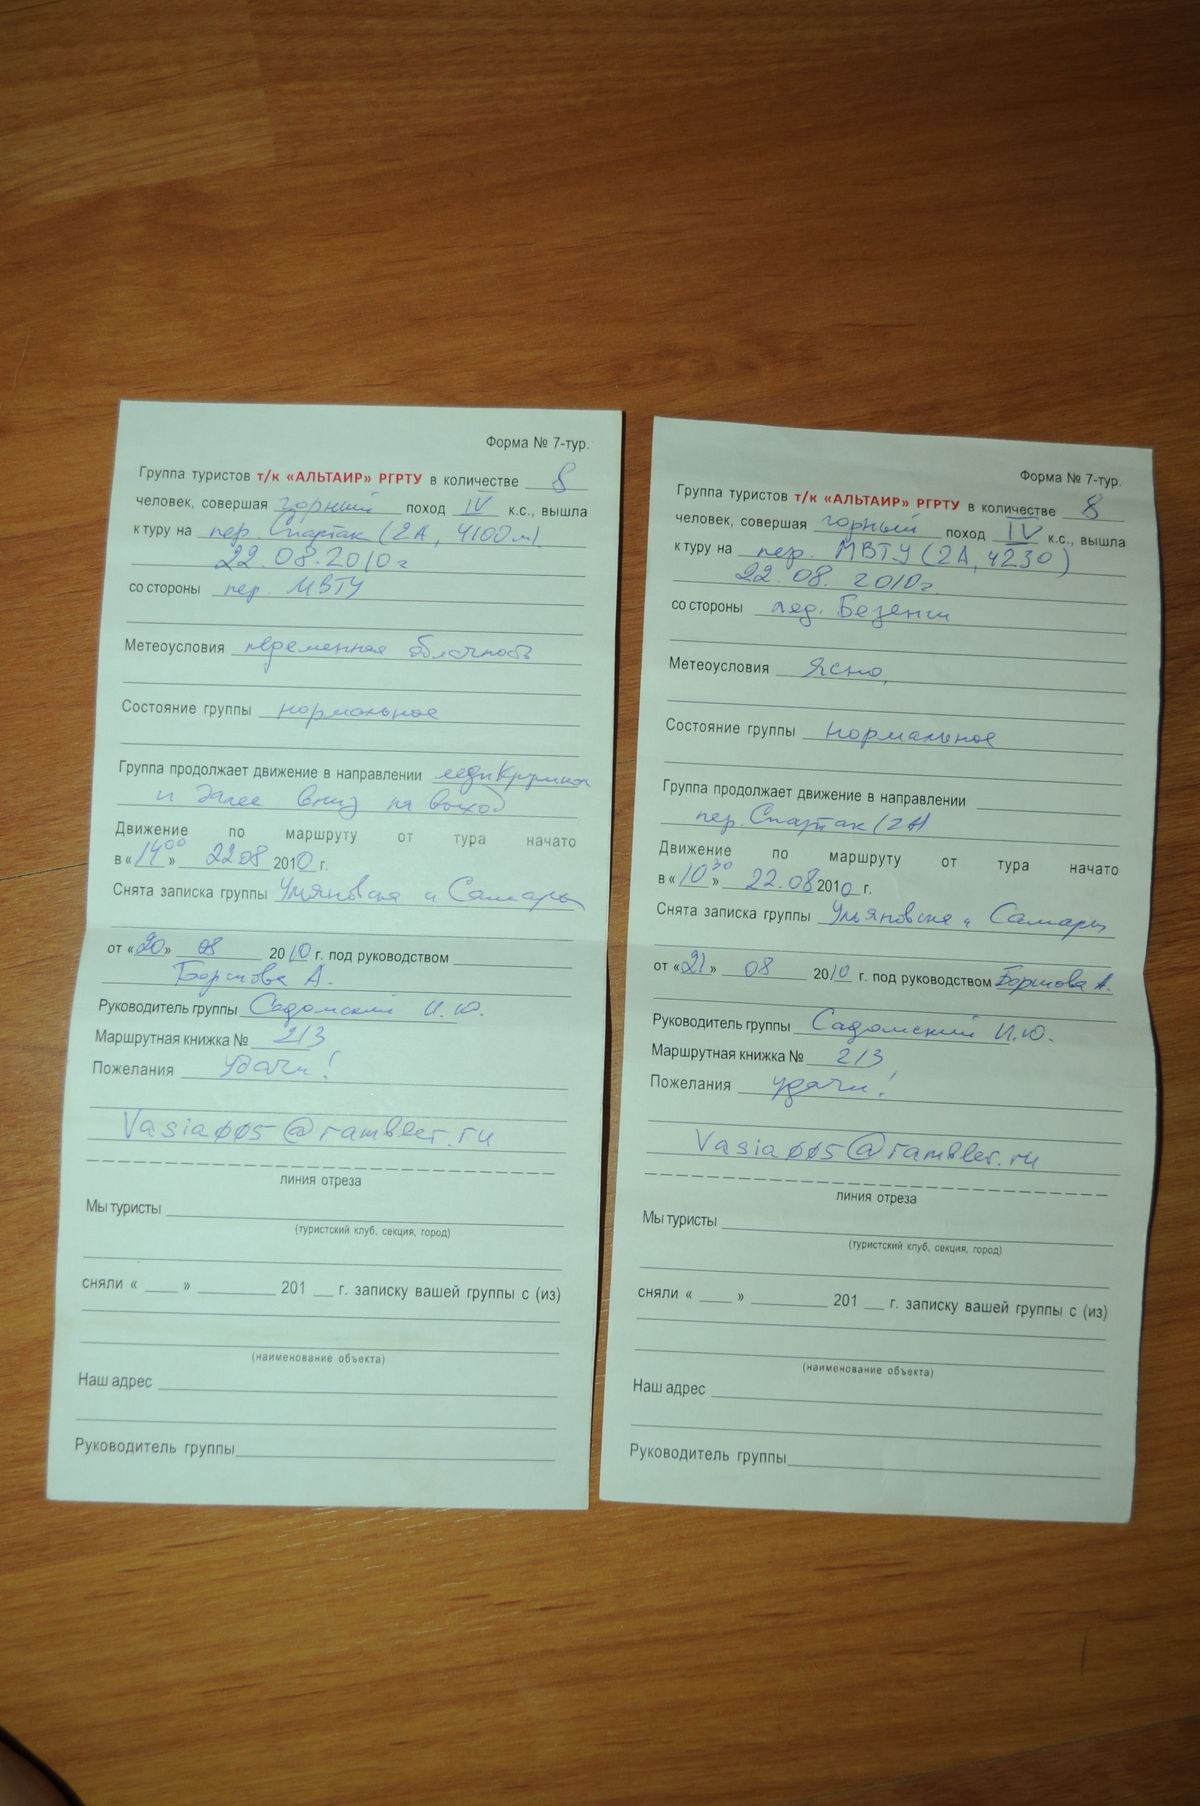 Форма № 7-тур.
Группа туристов т/к «АЛЬТАИР» РГРТУ в количестве 8
человек, совершая горный поход IV к.с., вышла
к туру на пер. Спартак (2А, 4100м)
22.08.2010г
со стороны пер. МВТУ
Метеоусловия переменная облачность
Состояние группы нормальное
Группа продолжает движение в направлении
и далее вниз на выход
Движение по маршруту от тура начато
в «14 00» 22 08 2010 г.
Снята записка группы Ульяновска и Самары
от «20» 08 2010 г. под руководством
Борисова А.
Руководитель группы Садомский И.Ю.
Маршрутная книжка № 213
Пожелания удачи!
Vasia005@rambler.ru
линия отреза
Мы туристы
(туристский клуб, секция, город)
сняли « » 201 г. записку вашей группы с (из)
(наименование объекта)
Наш адрес
Руководитель группы
Форма № 7-тур.
Группа туристов т/к «АЛЬТАИР» РГРТУ в количестве 8
человек, совершая горный поход IV к.с., вышла
к туру на пер. МВТУ (2А, 4230)
22.08.2010г
со стороны лед. Безенги
Метеоусловия Ясно,
Состояние группы нормальное
Группа продолжает движение в направлении
пер. Спартак (2А)
Движение по маршруту от тура начато
в «10 30» 22.08 2010 г.
Снята записка группы Ульяновска и Самары
от «21» 08 2010 г. под руководством Борисова А.
Руководитель группы Садомский И.Ю.
Маршрутная книжка № 213
Пожелания удачи!
Vasia005@rambler.ru
линия отреза
Мы туристы
(туристский клуб, секция, город)
сняли « » 201 г. записку вашей группы с (из)
(наименование объекта)
Наш адрес
Руководитель группы